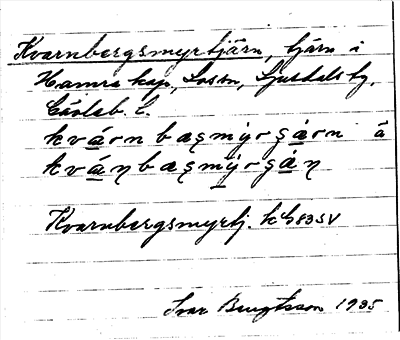 Kvarnbergsmyrtjärn, tjärn i
Hamra kap., Losm, Ljusdals tg,
Gävleb. l.
kvárn bæșmýrșárn å
kváηbæșmýrșáη
Kvarnbergsmyrtj. kb83SV
Ivar Bengtsson 1935